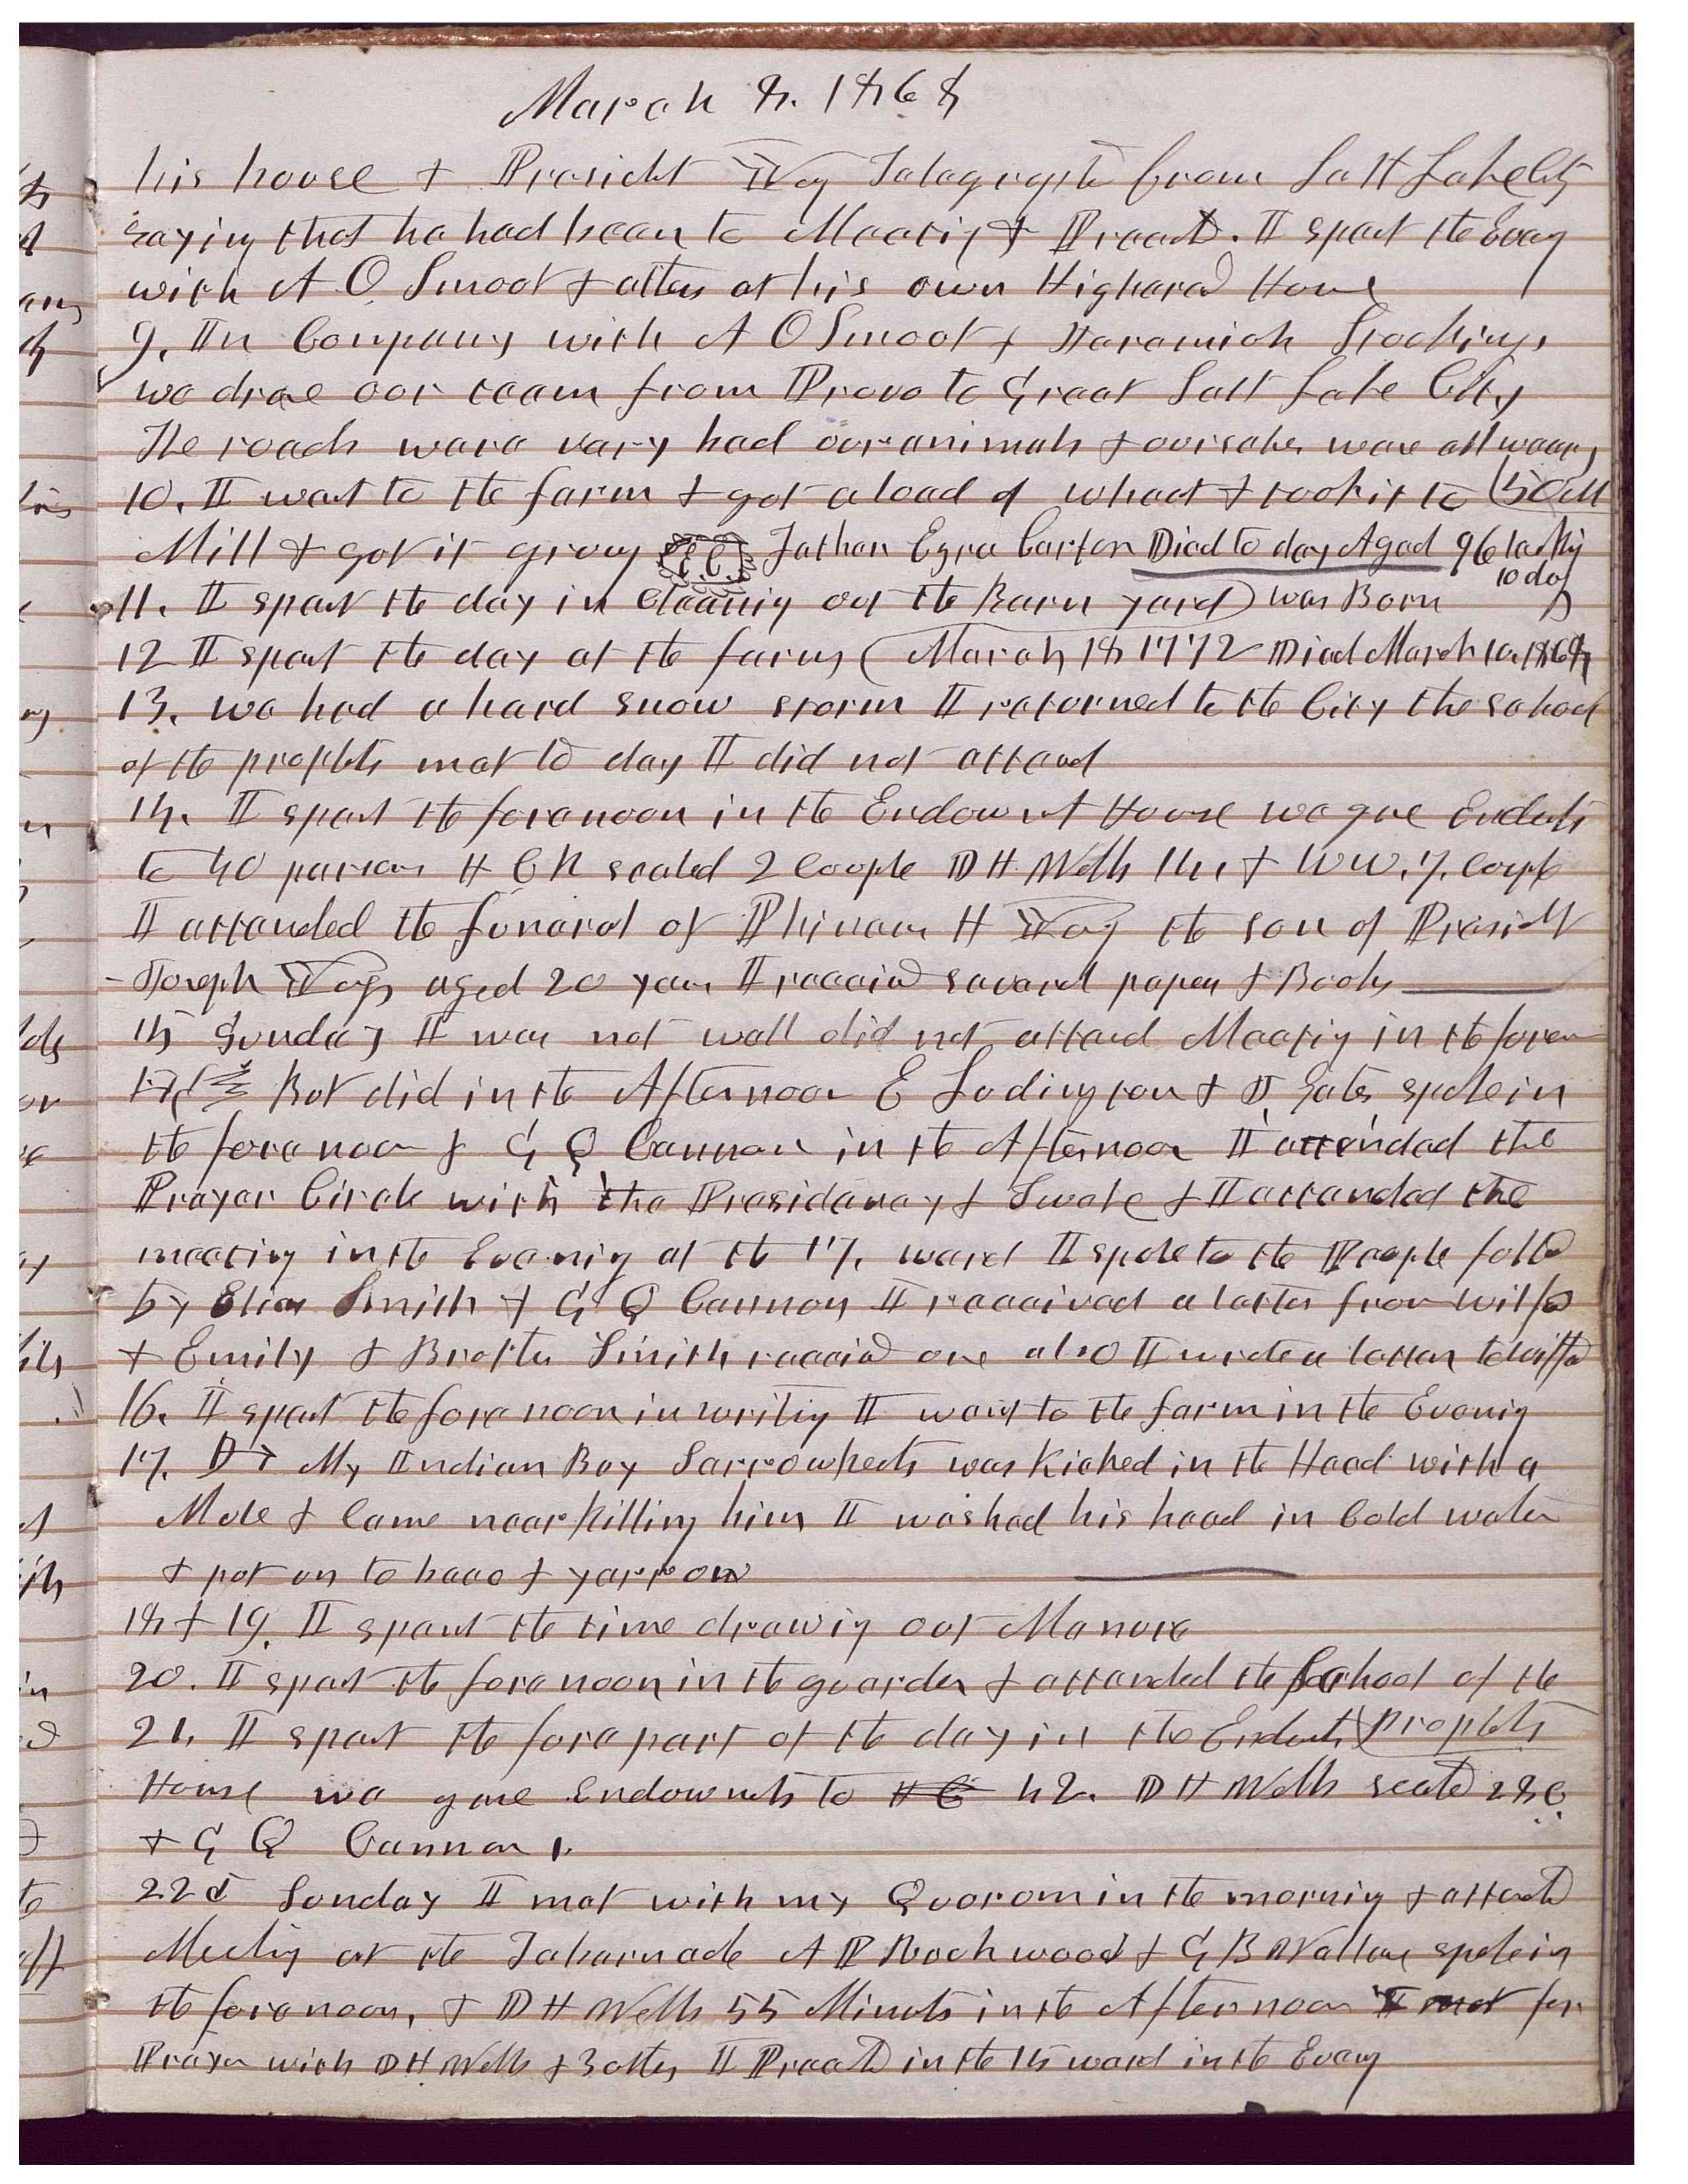 March 8. 1868
his house & Presidet Yog Telegrapht from Salt Lake City
saying that he had been to Meetig & Preacd. I spent the Eveng
with A O Smoot & others at his own Highered House
9. In Company with A O Smoot & Jeremiah Stockings
we drove our team from Provo to Great Salt Lake City
The roads were very bad our animals & ourselves were all weary
10. I went to the farm & got a load of wheat & took it to
Mill & got it groung EC Father Ezra Carter Died to day Aged 96 lackig
10 dys
11. I spent the day in cleanig out the Barn yard) was Born
12 I spent the day at the farm (March 18 1772 Died March 10. 1868
13. we had a hard snow storm I returned to the City the school
of the prophets met to day I did not attend
14. I spent the forenoon in the Endowmt House we gave Endmts
to 40 persons H C K sealed 2 Couple D H Wells 14, & W W. 7. Coupl
I attended the funeral of Phinehas H Yog the son of Presidt
Joseph Yog aged 20 years I received several papers & Books
15 Sunday I was not well did not attend Meetig in the foren
But did in the Afternoon E Ludington & J. Gates spoke in
the forenoon & G Q Cannon in the Afternoon I attended the
Prayer Circle with the Presidency & Twelve & I attended the
meetig in the Evenig at the 17. ward I spoke to the People folld
by Elias Smith & G Q Cannon I received a letter from Wilfd
& Emily & Brother Smith received one also I wrote a letter to Wilfd
16. I spent the forenoon in writig I went to the farm in the Evenig
17. My Indian Boy Sarrowkeets was Kicked in the Head with a
Mule & Came near killing him I washed his head in Cold water
& put on tobacco & yarrow
18 & 19. I spent the time drawig out Manure
20. I spent the forenoon in the guarden & attended the School of the
21. I spent the fore part of the day in the Endmt (Prophets
House we gave Endowmts to H C 42. D H Wells seald 28 C.
& G Q Cannon 1.
22d Sunday I met with my Quorum in the mornig & attend
Meetig at the Tabernacle A P Rockwood & G B Wallace spoke in
the forenoon, & D H Wells 55 Minuts in the Afternoon I met for
Prayer with D H Wells & 3 others I Preachd in the 15 ward in the Eveng